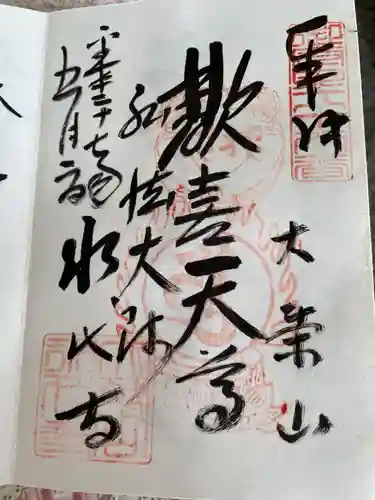 奉拝
大栄山
歓喜天尊
弘法大師
永代寺
平成二十七年
五月